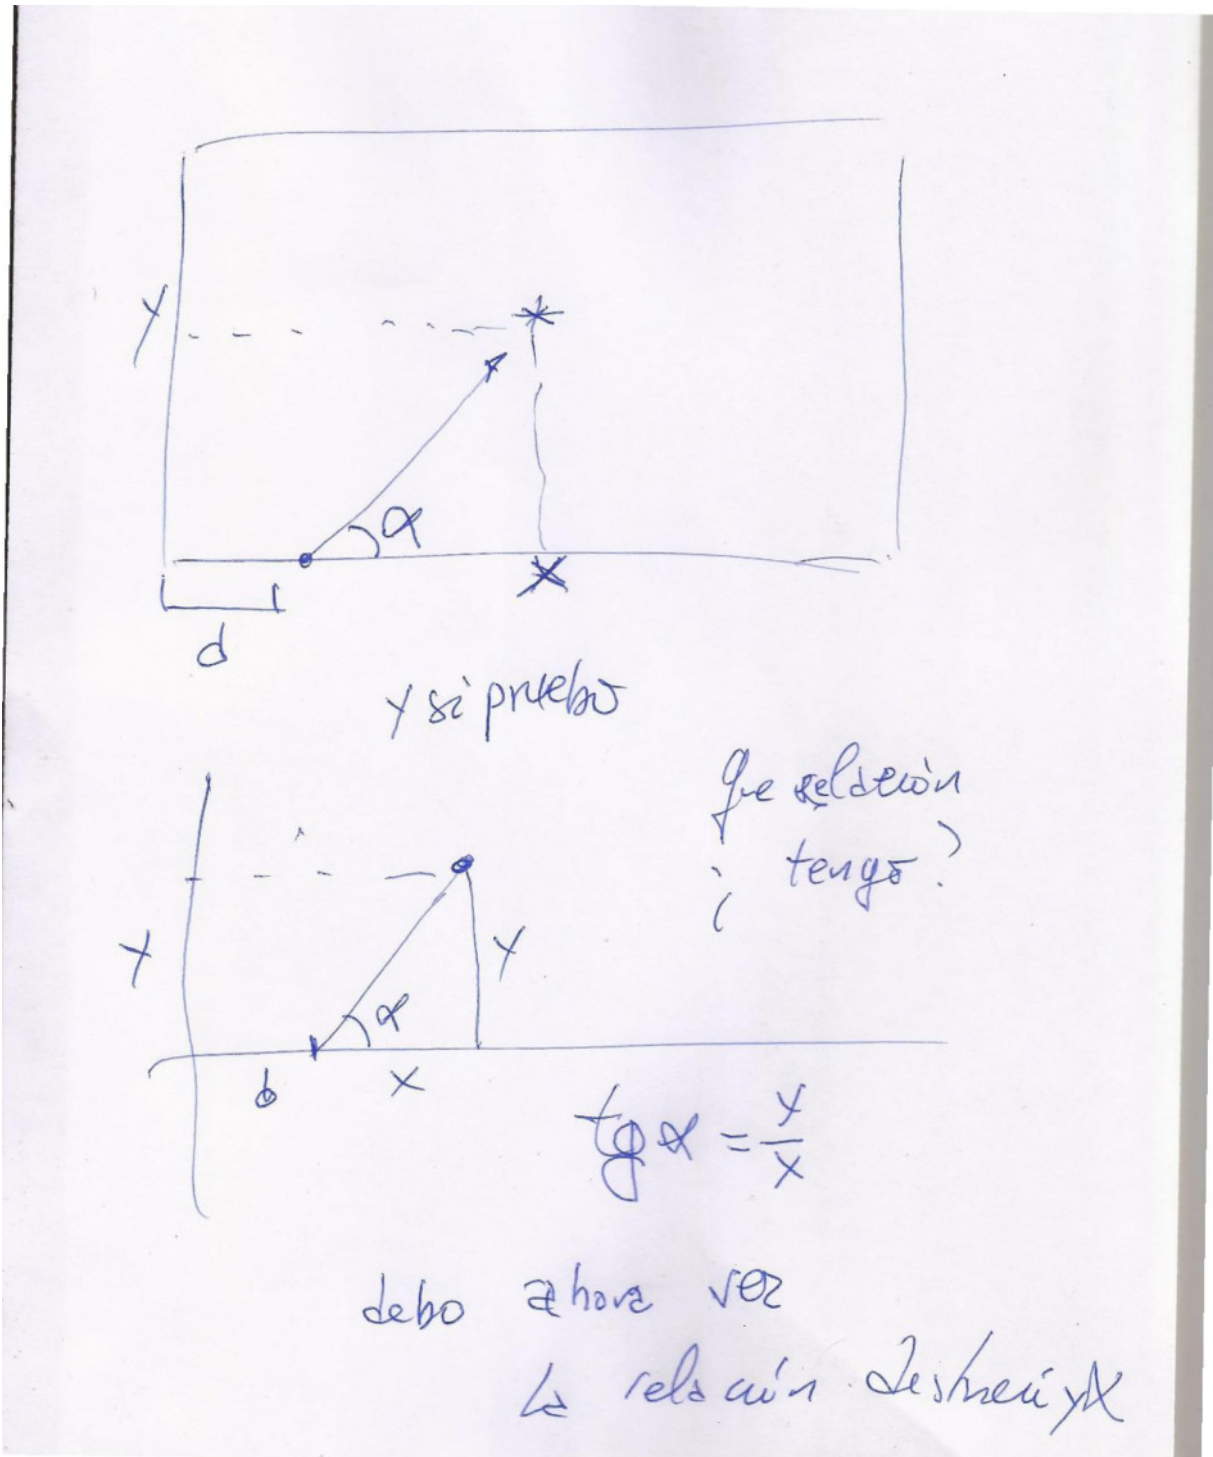 y
α
x
d
y si pruebo
que relación
¿ tengo?
y
y
α
b
x
tg α = y/x
debo ahora ver
la relación